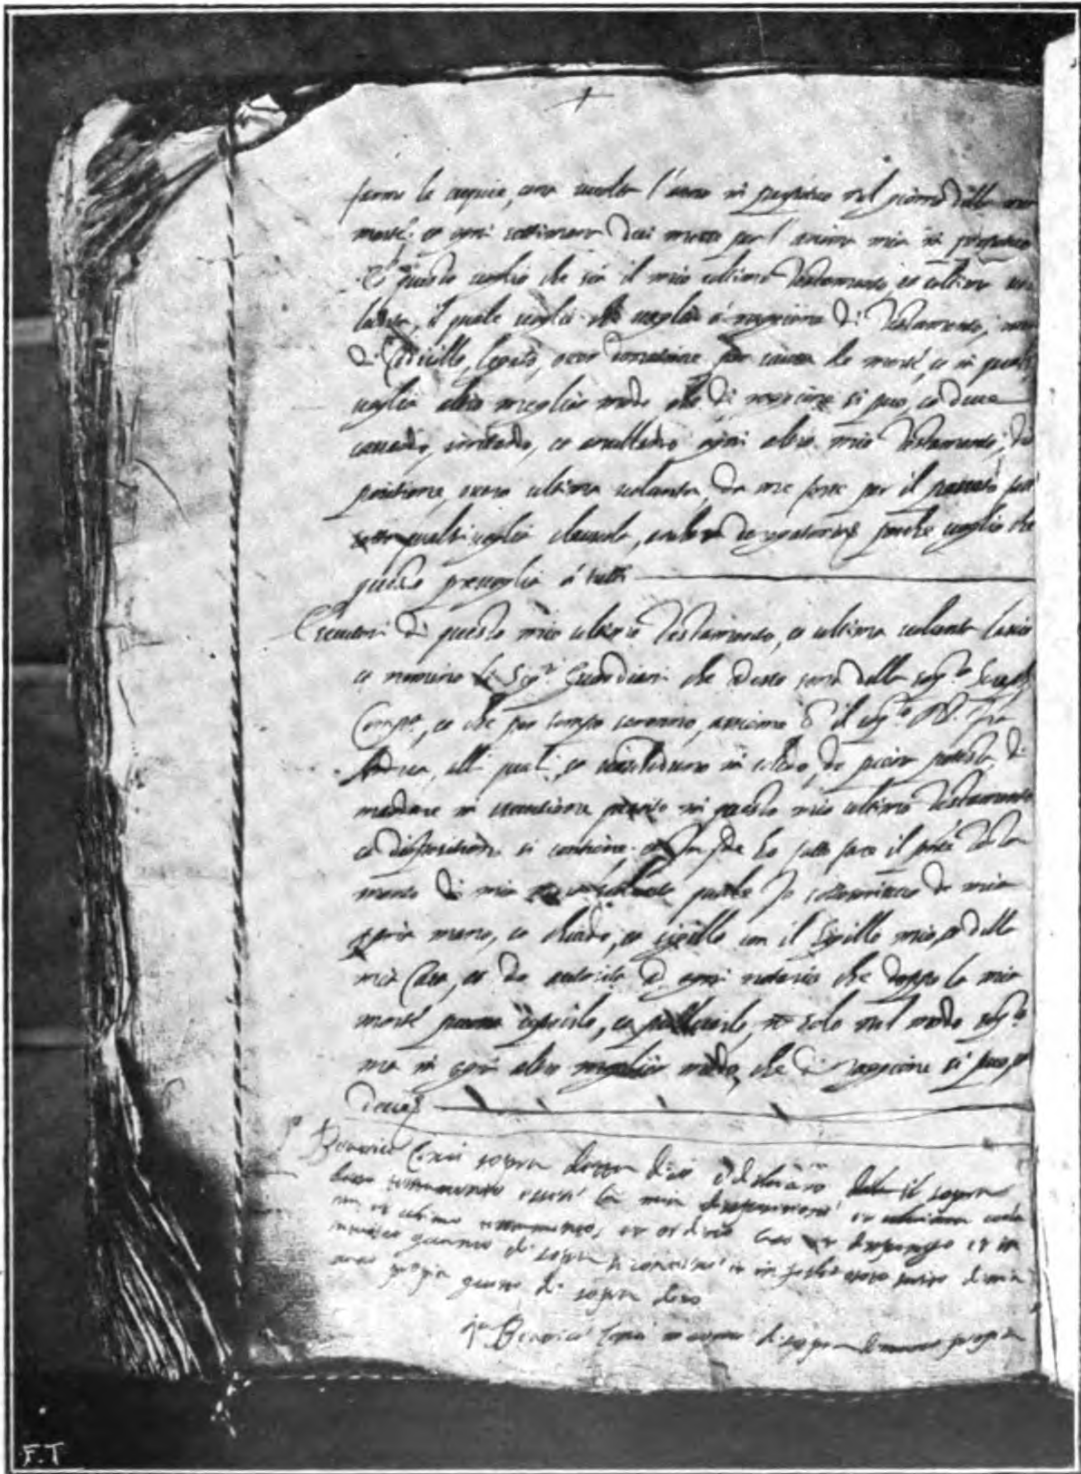 fanno le esequie, una uolta l'anno in perpetuo nel giorno della mia
morte, et ogni settimana due messe per l'anima mia in perpetuo
Et questo uoglio che sia il mio ultimo Testamento, et ultima uo
lontà, il quale uoglio che uaglia à raggione di Testamento,
di Codicillo, legato, ouer donatione per causa de morte, et in qual
uoglia altro meglio modo che di raggione si può, et deue
cassando, irritando, et annullando ogni altro mio Testamento, dis
positione, ouero ultima uolontà, da me forse per il passato
sotto qualsiuoglia clausula, derogatoria, perche uoglio che
questo preuaglia à tutti
Essecutori di questo mio ultimo Testamento, et ultima uolontà lascio
et nomino li Sig.ri Guardiani che adesso sono della
Comp.a, et che per tempo saranno, assieme il
Andrea, alli quali, et in solido, do piena potestà, di
mandare in essecutione quanto in questo mio ultimo Testamento
et dispositione si contiene. et in fede ho fatto fare il pñte Testa
mento di mia uolontà quale Io sottoscritto de mia
ppria mano, et chiudo, et sigillo con il Sigillo mio, ò della
mia Casa, et do autorità ad ogni notario che doppo la mia
morte possa aprirlo, et publicarlo, nõ solo nel modo
ma in ogni altro meglior modo, che di raggione si può, ò
deue
Io Beatrice Cenci sopra detta dico e dechiaro il sopra
detto testamento essere la mia dispositione et ultima uolon
et ultimo testamento, et ordino et dispongo et in
quanto di sopra si contiene et in fede ho scritto di mia
propria questo di sopra detto
Io Beatrice Cenci di sopra mano propria
F.T